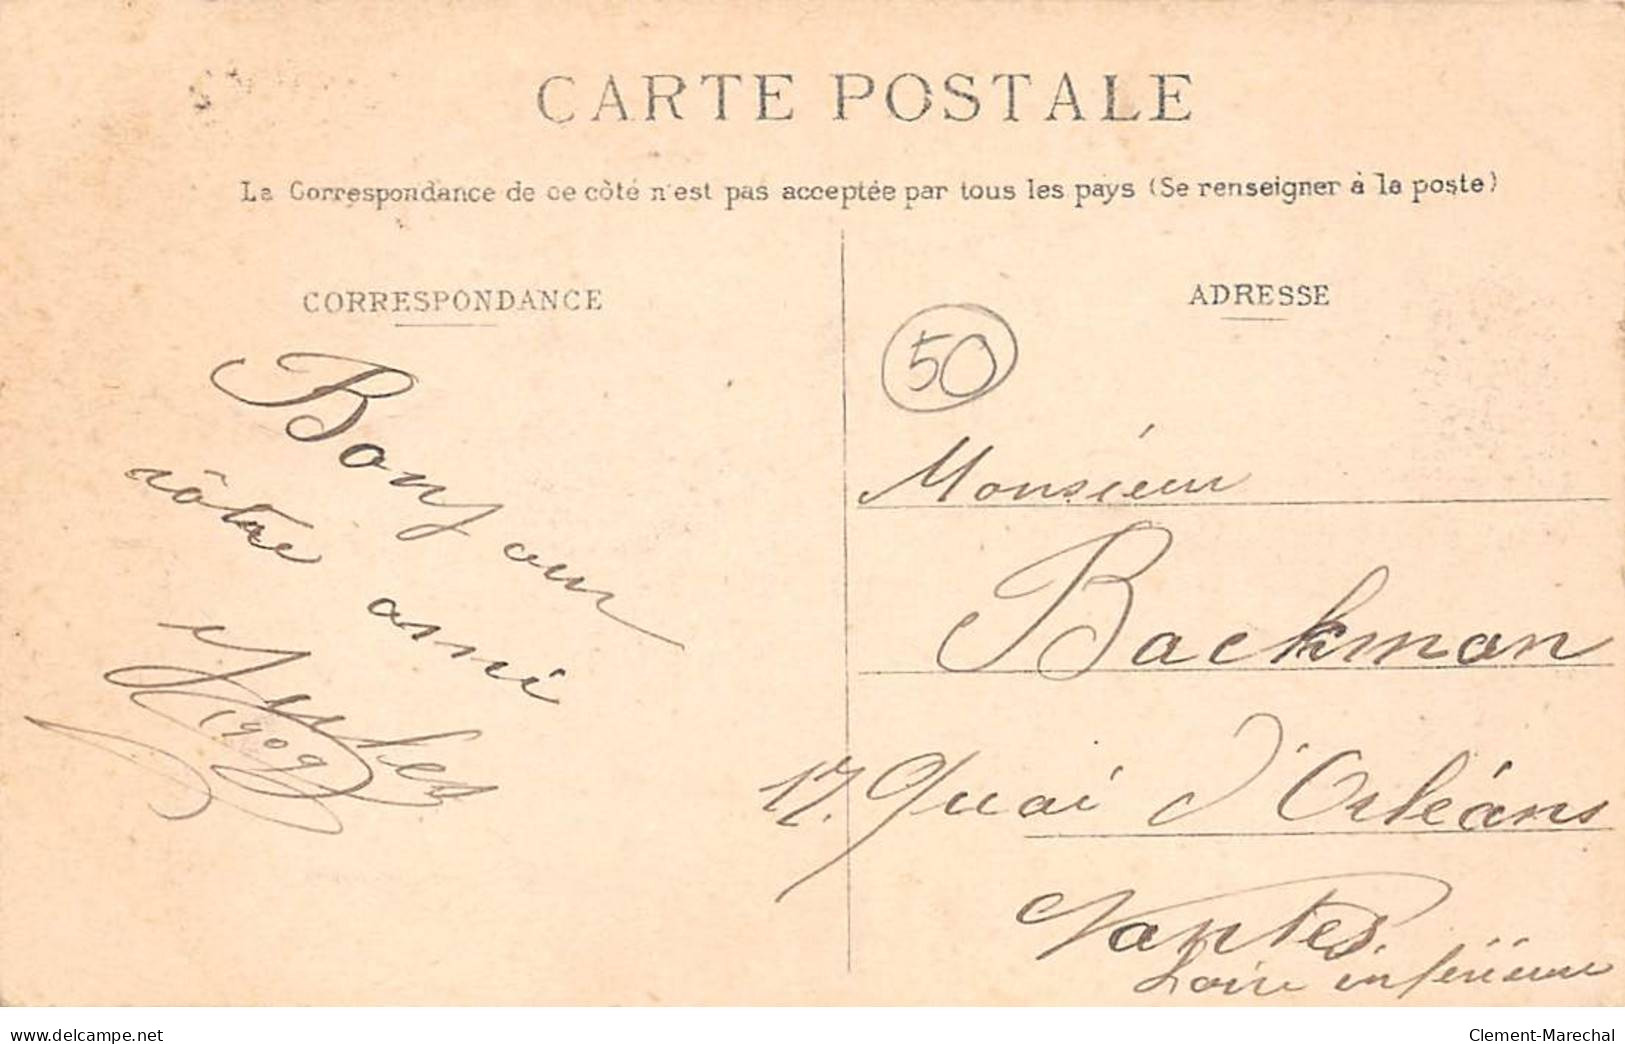 CARTE POSTALE
La Correspondance de ce côté n'est pas acceptée par tous les pays (Se renseigner à la poste)
CORRESPONDANCE
Bonjour
vôtre ami
Jules
1909
ADRESSE
50
Monsieur
Backman
17. Quai d'Orléans
Nantes.
Loire inférieure
www.delcampe.net
Clement-Marechal